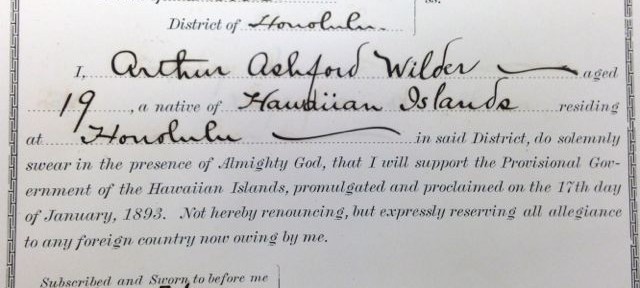 District of Honolulu.
I, Arthur Ashford Wilder aged
19, a native of Hawaiian Islands residing
at Honolulu in said District, do solemnly
swear in the presence of Almighty God, that I will support the Provisional Gov-
ernment of the Hawaiian Islands, promulgated and proclaimed on the 17th day
of January, 1893. Not hereby renouncing, but expressly reserving all allegiance
to any foreign country now owing by me.
Subscribed and Sworn to before me